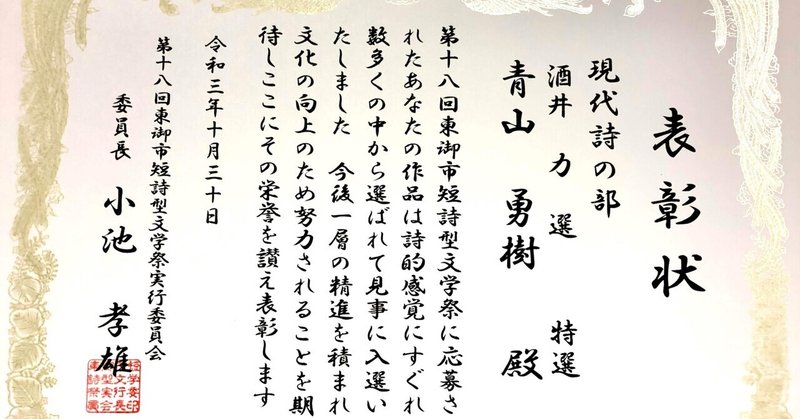 表彰状
現代詩の部
酒井 力 選 特選
青山 勇樹 殿
第十八回東御市短詩型文学祭に応募さ
れたあなたの作品は詩的感覚にすぐれ
数多くの中から選ばれて見事に入選い
たしました 今後一層の精進を積まれ
文化の向上のため努力されることを期
待しここにその栄誉を讃え表彰します
令和三年十月三十日
第十八回東御市短詩型文学祭実行委員会
委員長 小池 孝雄